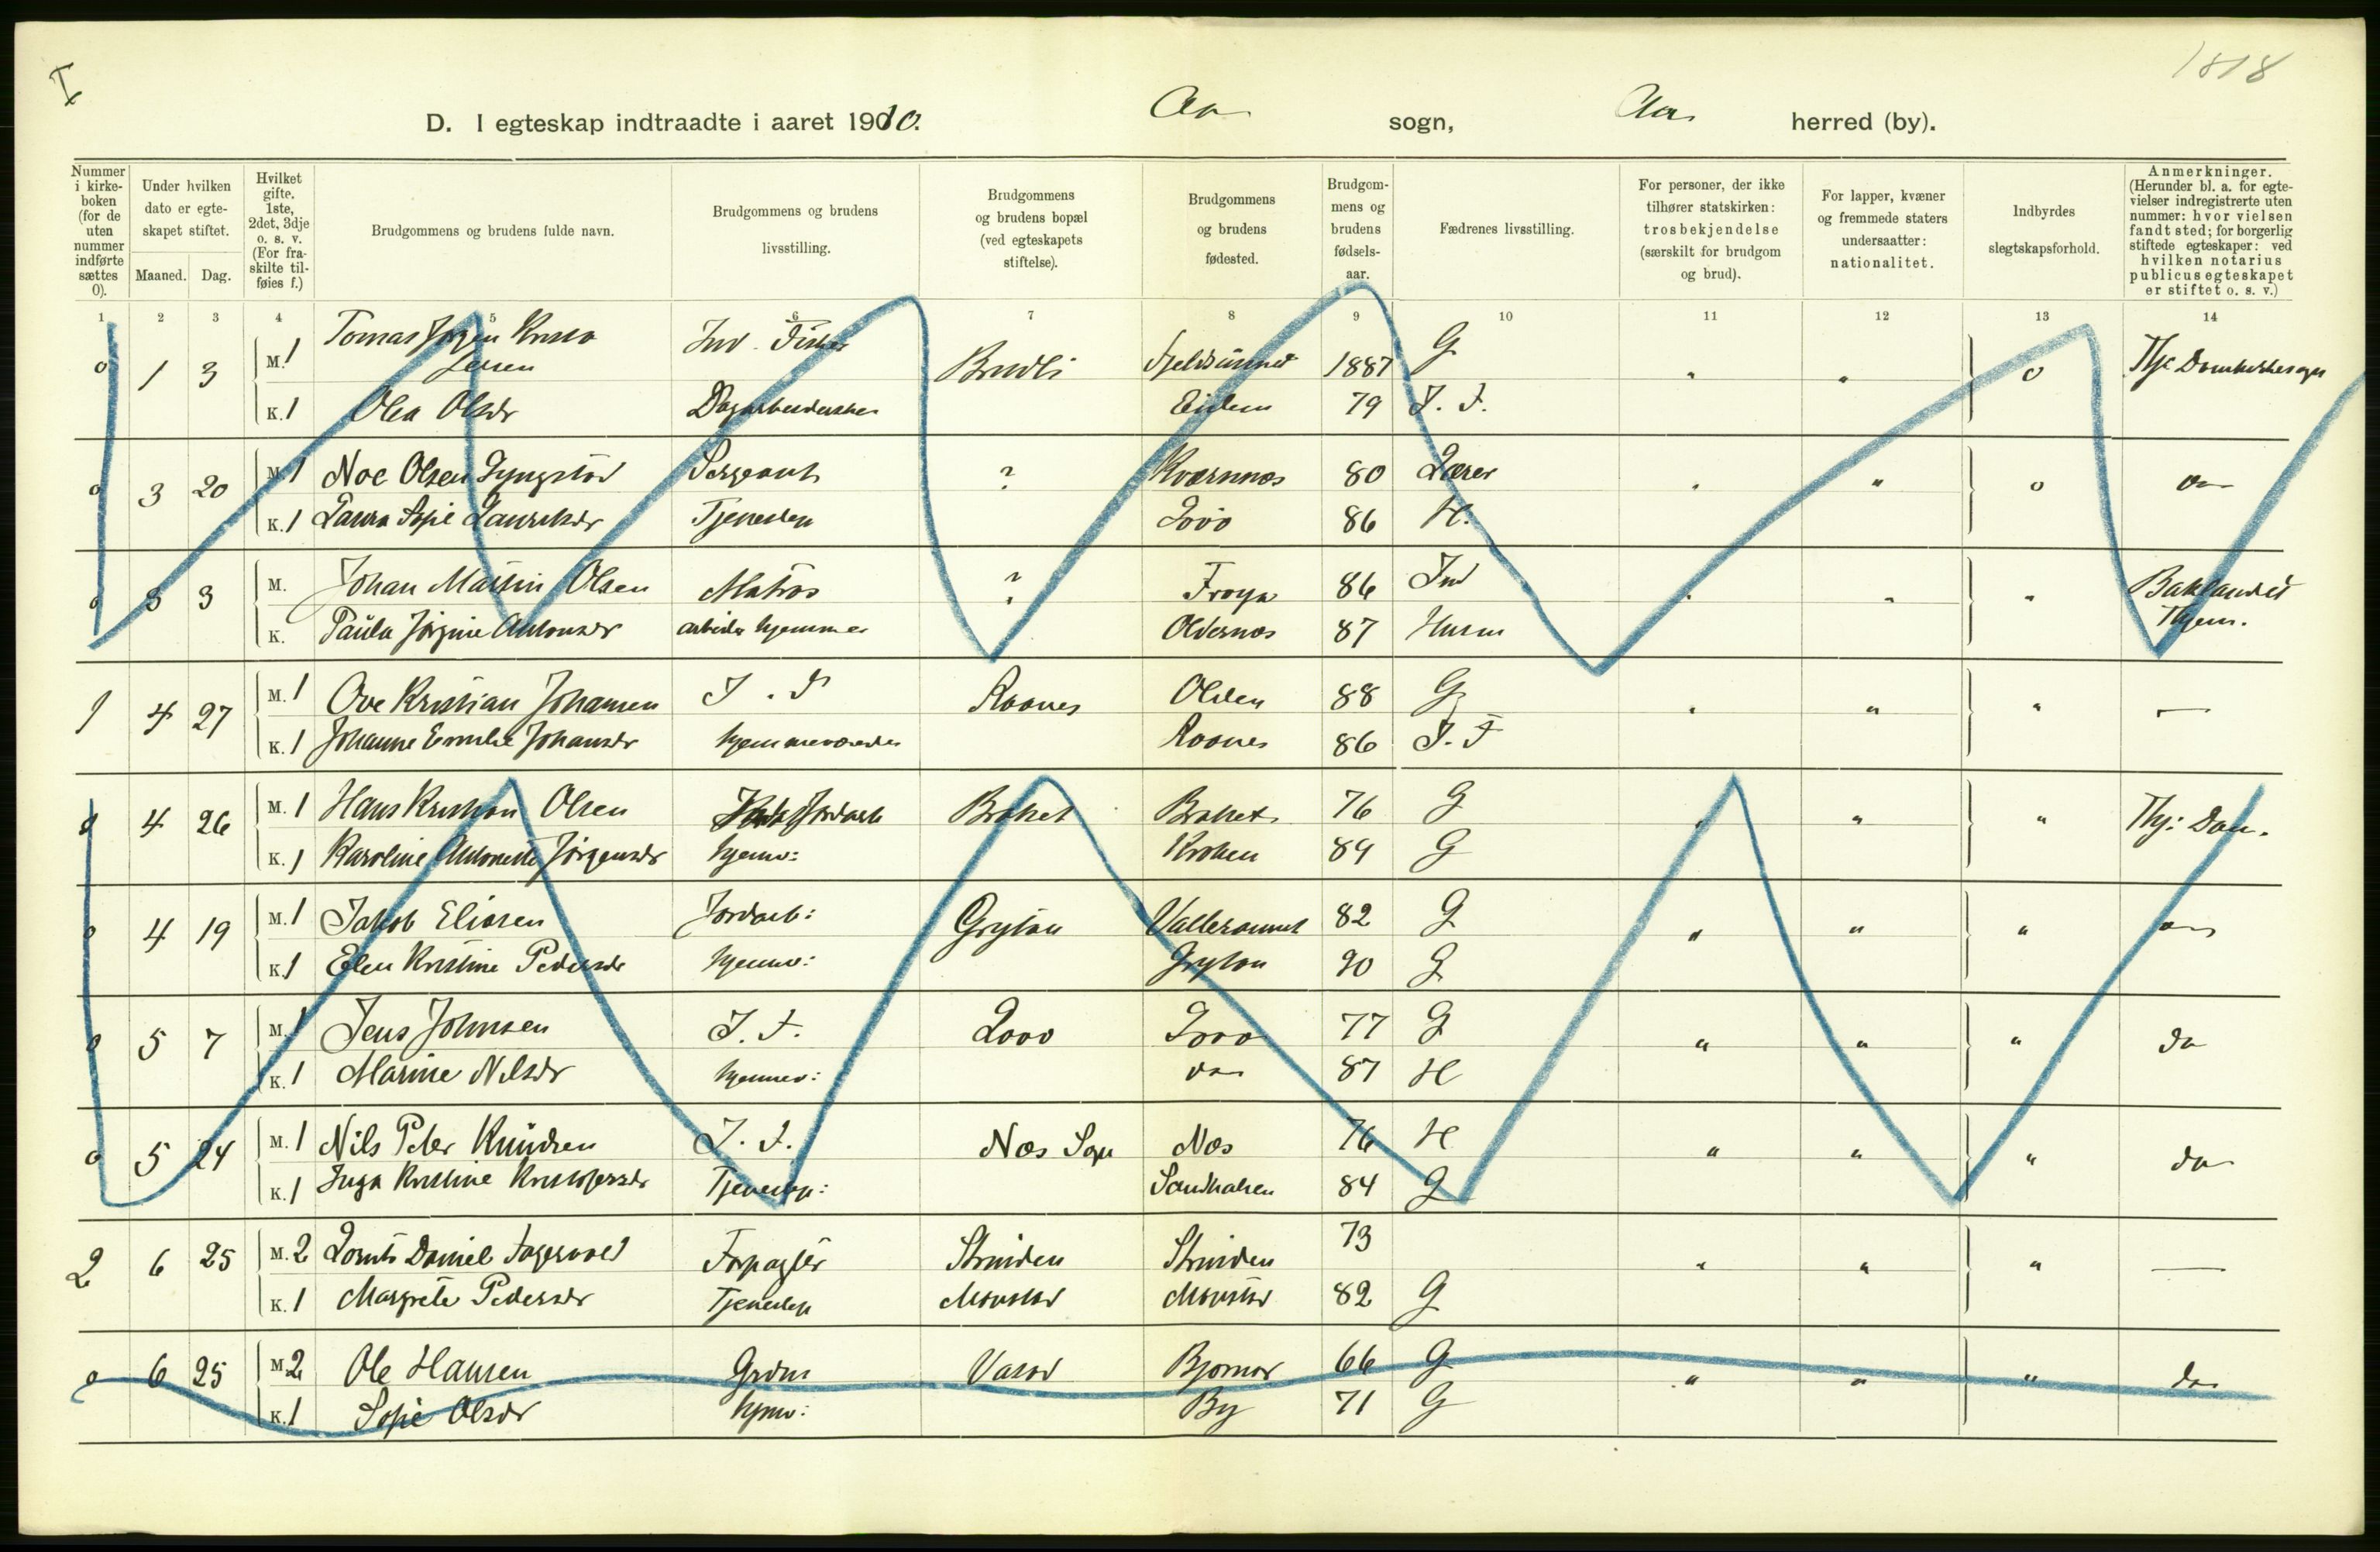 I
1818
D. I egteskap indtraadte i aaret 1910. Aa sogn, Aa herred (by).
Nummer i kirke-boken (for de uten nummer indførte sættes 0).
Under hvilken dato er egte-skapet stiftet.
Maaned. Dag.
Hvilket gifte. 1ste, 2det, 3dje o. s. v. (For fra-skilte til-føies f.)
Brudgommens og brudens fulde navn.
Brudgommens og brudens livsstilling.
Brudgommens og brudens bopæl (ved egteskapets stiftelse).
Brudgommens og brudens fødested.
Brudgom-mens og brudens fødsels-aar.
Fædrenes livsstilling.
For personer, der ikke tilhører statskirken: trosbekjendelse (særskilt for brudgom og brud).
For lapper, kvæner og fremmede staters undersaatter: nationalitet.
Indbyrdes slegtskapsforhold.
Anmerkninger. (Herunder bl. a. for egte-vielser indregistrerte uten nummer: hvor vielsen fandt sted; for borgerlig stiftede egteskaper: ved hvilken notarius publicus egteskapet er stiftet o. s. v.)
1 2 3 4 5 6 7 8 9 10 11 12 13 14
0 1 3 M. 1 Tomas Jørgen Kristo Ind. Fisker 1887 G " " 0
K. 1 Olea Olsdr 79 I. F.
0 3 20 M. 1 Noe Olsen Sergeant ? Kværnnæs 80 Lærer " " 0 da
K. 1 Laura Sofie Tjenestep 86 H.
0 3 3 M. Johan Martin Olsen Matros ? Frøya 86 Ind " " " Baklandet
K. Paula Jørgine Antonsdr arbeider hjemme Oldernes 87 Husm Thjem.
1 4 27 M. 1 Ove Kristian Johansen I. F Raanes Olden 88 G " " " —
K. 1 Johanne Emilie Johansdr hjemmeværende Raanes 86 I. F
0 4 26 M. 1 Hans Kristian Olsen Jordarb 76 G " " " Thj: Dom.
K. 1 Karoline Antonette Jørgensdr hjemv: Kroken 89 G
0 4 19 M. 1 Jakob Eliasen Jordarb: Valleraunet 82 G " " " da
K. 1 Elen Kristine Pedersdr hjemv: 90 G
0 5 7 M. 1 Jens Johnsen I. F. 77 G " " " da
K. 1 Marine Nilsdr hjemmev: da 87 H
0 5 24 M. 1 Nils Peter Knudsen I. F. Næs Sogn Næs 76 H " " " da
K. 1 Inga Kristine Kristofersdr Tjenestep: 84 G
2 6 25 M. 2 Lorents Daniel Fagervold Forpagter Strinden Strinden 73 " " " —
K. 1 Margrete Pedersdr Tjenestep Monstad Monstad 82 G
0 6 25 M. 2 Ole Hansen Grdm Bjørnør 66 G " " " da
K. 1 Sofie Olsdr hjmv: By 71 G